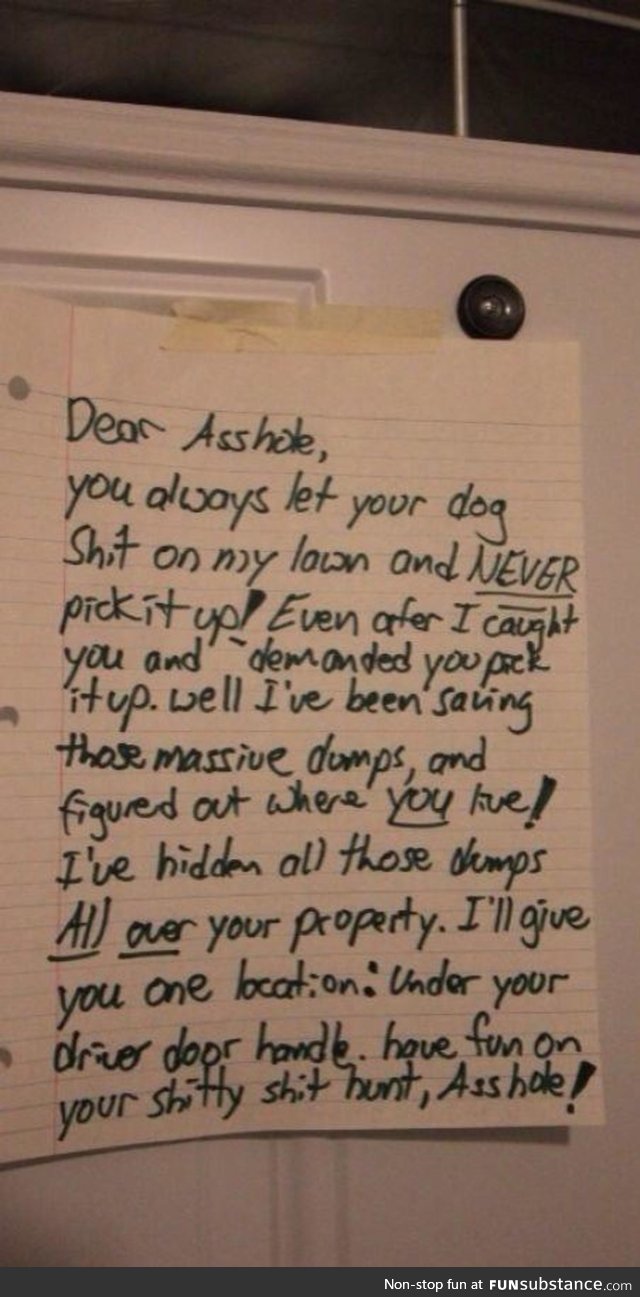 Dear Asshole,
you always let your dog
Shit on my lawn and NEVER
pick it up! Even afer I caught
you and demanded you pick
it up. well I've been saving
those massive dumps, and
figured out where you live!
I've hidden all those dumps
All over your property. I'll give
you one location: Under your
driver door handle. have fun on
your shitty shit hunt, Asshole!
Non-stop fun at FUNsubstance.com